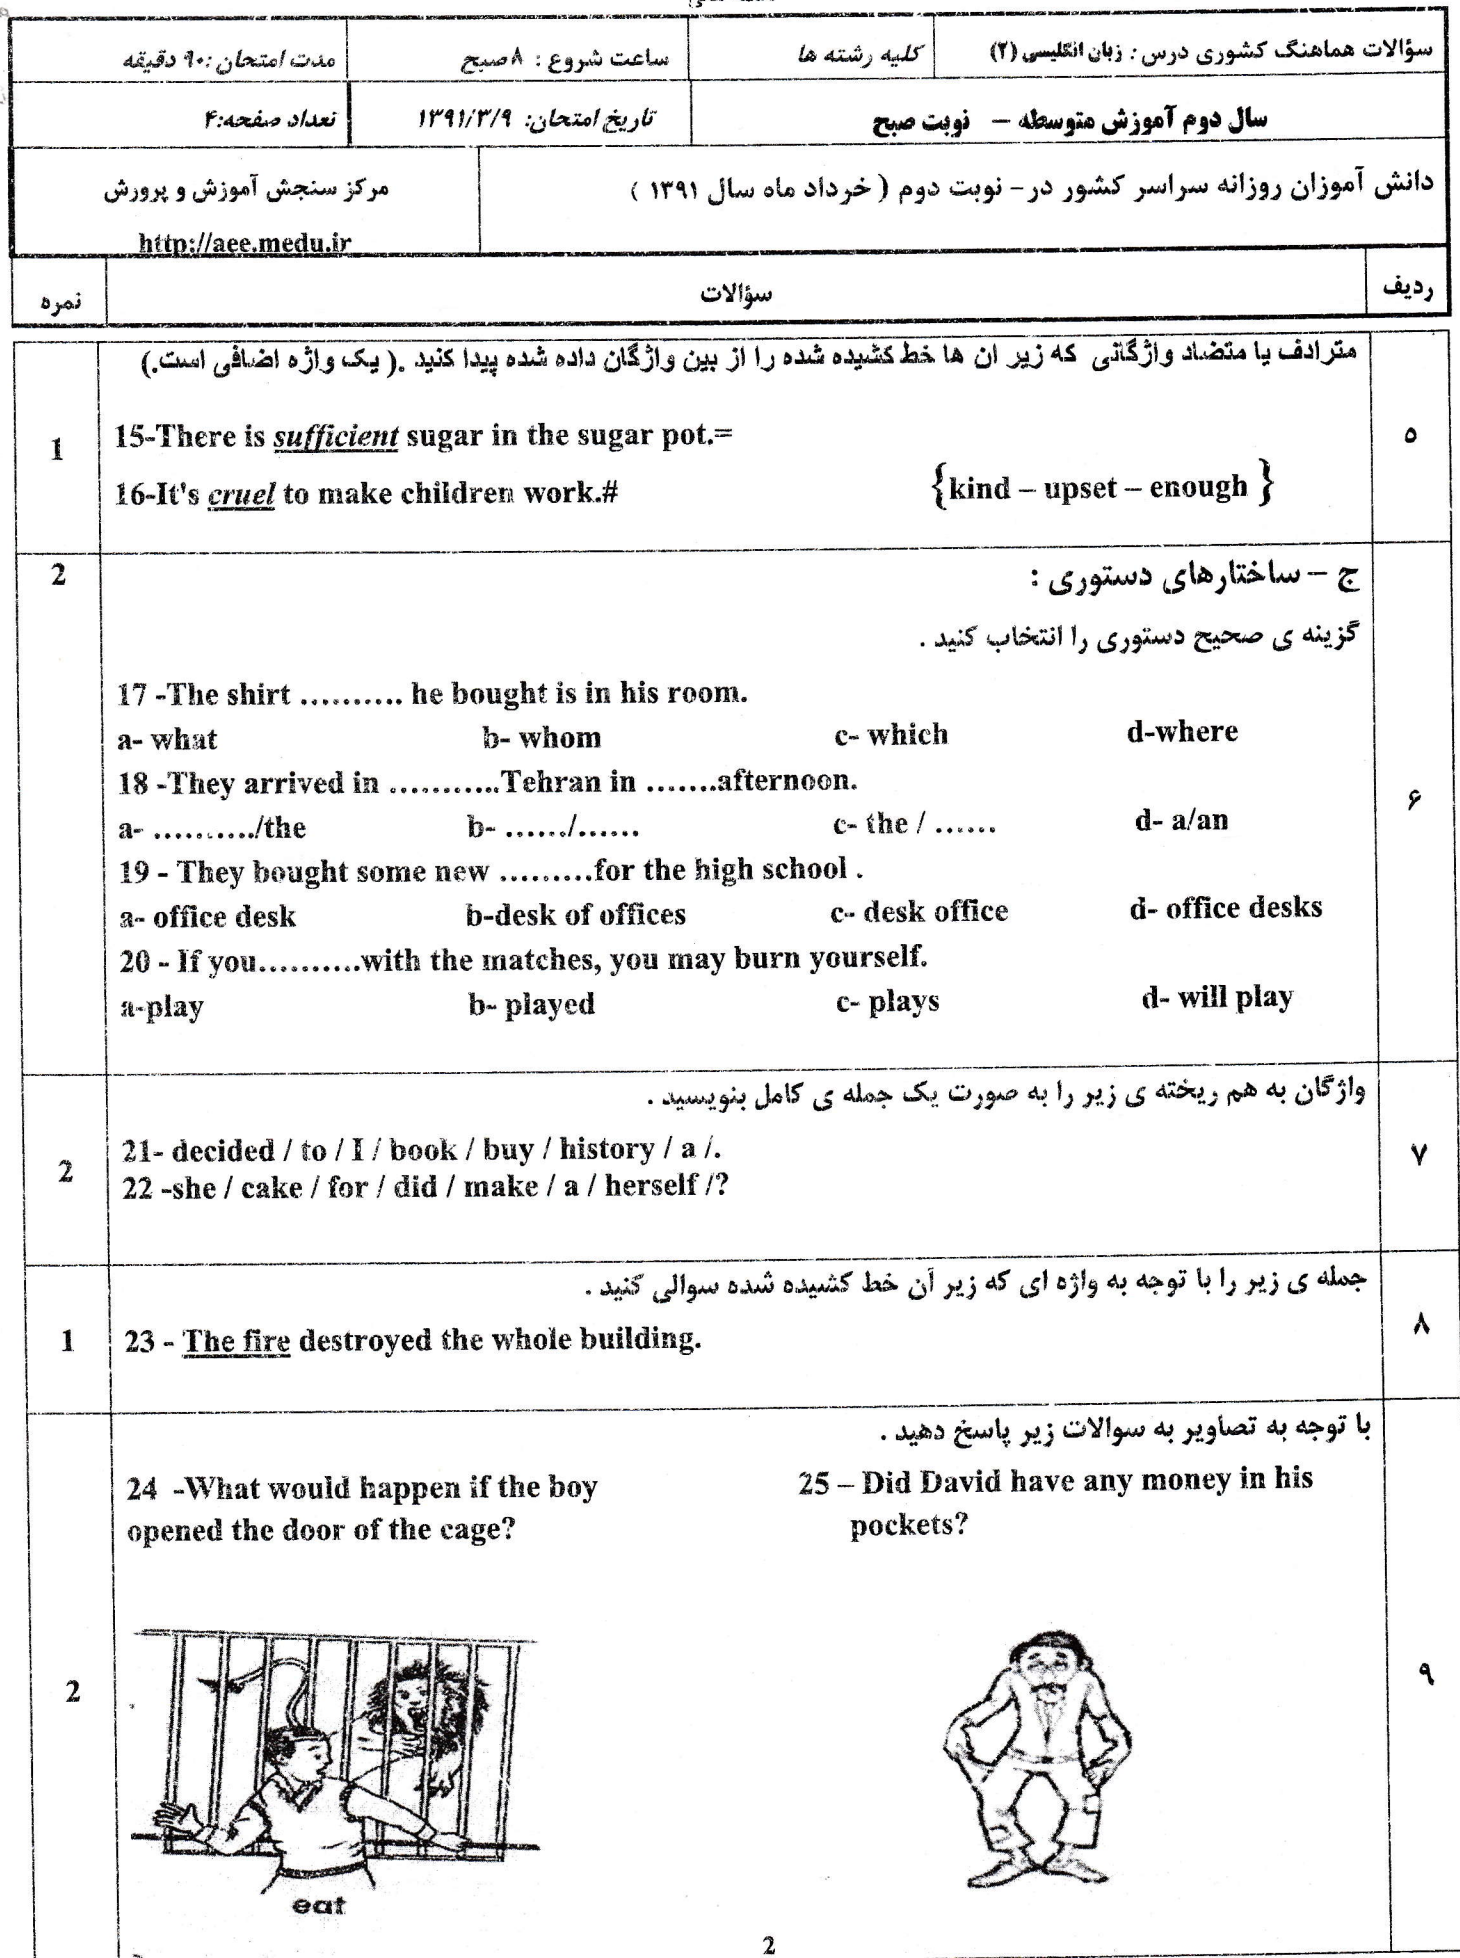 سؤالات هماهنگ کشوری درس : زبان انگلیسی (۲) کلیه رشته ها ساعت شروع : ۸ صبح مدت امتحان :۹۰ دقیقه
سال دوم آموزش متوسطه – نوبت صبح تاریخ امتحان: ۱۳۹۱/۳/۹ تعداد صفحه:۴
دانش آموزان روزانه سراسر کشور در- نوبت دوم ( خرداد ماه سال ۱۳۹۱ ) مرکز سنجش آموزش و پرورش
http://aee.medu.ir
ردیف سؤالات نمره
مترادف یا متضاد واژگانی که زیر ان ها خط کشیده شده را از بین واژگان داده شده پیدا کنید .( یک واژه اضافی است.)
15-There is sufficient sugar in the sugar pot.=
1 ۵
16-It's cruel to make children work.# {kind – upset – enough }
2 ج – ساختارهای دستوری :
گزینه ی صحیح دستوری را انتخاب کنید .
17 -The shirt .......... he bought is in his room.
a- what b- whom c- which d-where
18 -They arrived in ...........Tehran in .......afternoon.
۶
a- ........../the b- ....../...... c- the / ...... d- a/an
19 - They bought some new .........for the high school .
a- office desk b-desk of offices c- desk office d- office desks
20 - If you..........with the matches, you may burn yourself.
a-play b- played c- plays d- will play
واژگان به هم ریخته ی زیر را به صورت یک جمله ی کامل بنویسید .
21- decided / to / I / book / buy / history / a /.
2 ۷
22 -she / cake / for / did / make / a / herself /?
جمله ی زیر را با توجه به واژه ای که زیر آن خط کشیده شده سوالی کنید .
1 23 - The fire destroyed the whole building. ۸
با توجه به تصاویر به سوالات زیر پاسخ دهید .
24 -What would happen if the boy 25 – Did David have any money in his
opened the door of the cage? pockets?
2 ۹
eat
2